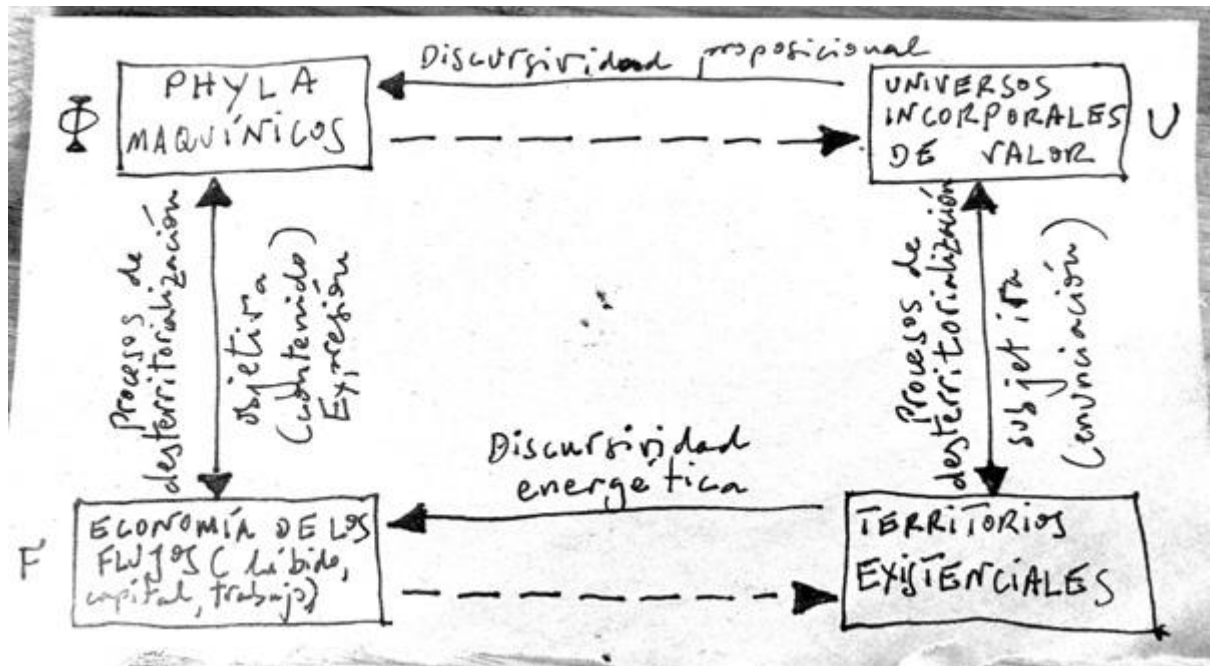 Discursividad proposicional
Φ
PHYLA
MAQUÍNICOS
UNIVERSOS
INCORPORALES
DE VALOR
U
Procesos de
desterritorialización
objetiva
(contenido)
Expresión
Procesos de
desterritorialización
subjetiva
(enunciación)
Discursividad
energética
F
ECONOMÍA DE LOS
FLUJOS (líbido,
capital, trabajo)
TERRITORIOS
EXISTENCIALES